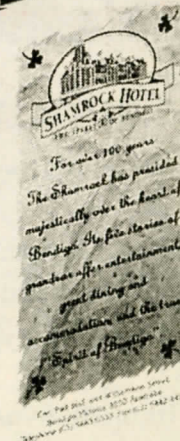 SHAMROCK HOTEL
THE SPIRIT OF BENDIGO
For over 100 years
The Shamrock has presided
majestically over the heart of
Bendigo. Its five stories of
grandeur offer entertainment,
great dining and
accommodation and the true
"Spirit of Bendigo"
Cnr Pall Mall and Williamson Street
Bendigo Victoria 3550 Australia
Telephone (03)